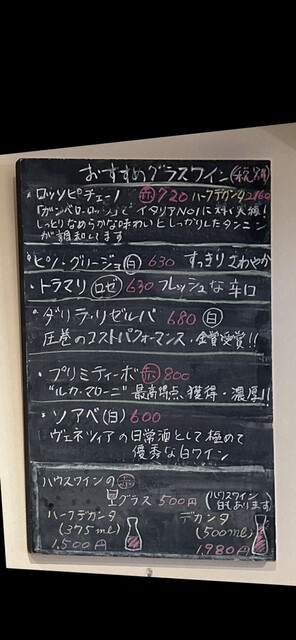 おすすめグラスワイン(税別)
・ロッソピチェーノ (赤) 720 ハーフデカンタ 2160
「ガンベロ・ロッソ」でイタリアNO1に対く大様!
しっとりなめらかな味わいとしっかりしたタンニン
が調和してます
・ピノ・グリージョ(白) 630 すっきりさわやか
・トラマリ (ロゼ) 630 フレッシュな辛口
・ダリラ・リゼルバ 680 (白)
圧巻のコストパフォーマンス・金賞受賞!!
・プリミティーボ (赤) 800
"ルカ・マローニ" 最高得点、獲得・濃厚!!
・ソアベ(白) 600
ヴェネツィアの日常酒として極めて
優秀な白ワイン
ハウスワインの(赤)
グラス 500円 (ハウスワイン
白もあります)
ハーフデカンタ
(375ml)
1.500円
デカンタ
(500ml)
1.980円